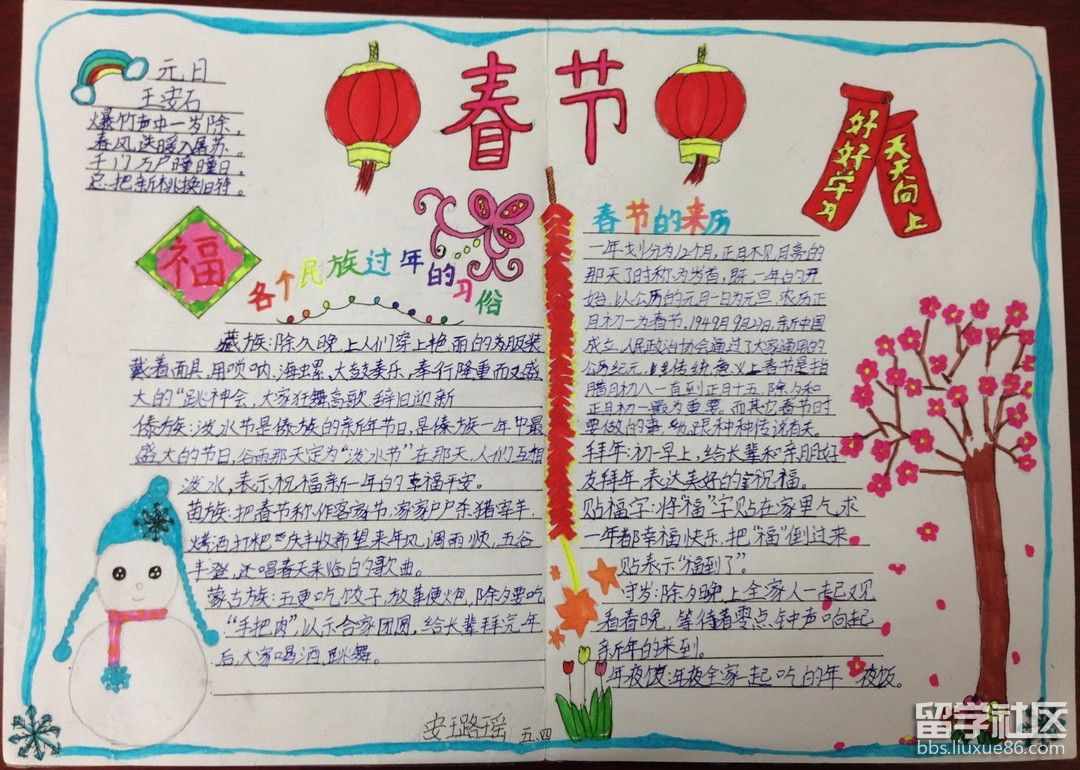 春节
元日
王安石
爆竹声中一岁除，
春风送暖入屠苏。
千门万户曈曈日，
总把新桃换旧符。
福
好好学习
天天向上
各个民族过年的习俗
藏族：除夕晚上人们穿上艳丽的
戴着面具，用唢呐、海螺、大鼓奏乐，奉行隆重而又盛
大的“跳神会，大家狂舞高歌 辞旧迎新
傣族：泼水节是傣族的新年节日，是傣族一年中最
盛大的节日，谷雨那天定为“泼水节”在那天，人们互相
泼水，表示祝福新一年的幸福平安。
苗族：把春节称作客家节，家家户户杀猪宰羊
烤酒打粑 庆丰收希望来年风调雨顺，五谷
丰登，还唱春天来临的歌曲。
蒙古族：五更吃饺子，放鞭炮，除夕要吃
“手把肉”以示合家团圆，给长辈拜完年
后，大家喝酒，跳舞。
春节的来历
一年划分为12个月，正月不见月亮的
那天 时称为岁首，既一年的开
始，以公历的元月一日为元旦 农历正
月初一为春节，1949月9月27日，新中国
成立，人民政治协会通过了大家通用的
公历纪元，且传统意义上春节是指
腊月初八一直到正月十五，除夕和
正月初一最为重要。而其它春节时
要做的事 跟种种传说有关。
拜年：初一早上，给长辈和亲朋好
友拜年，表达美好的祝福。
贴福字：将“福”字贴在家里乞求
一年都幸福快乐，把“福”倒过来
贴表示“福到了”。
守岁：除夕晚上全家人一起观
看春晚，等待着零点钟声响起
新年的来到。
年夜饭：年夜全家一起吃的年 夜饭。
安珏路瑶 五.四
留学社区
bbs.liuxue86.com